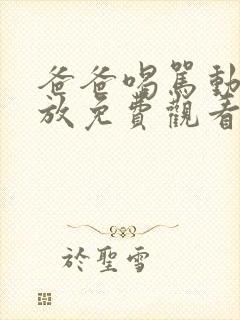 爸爸喝罵動
放免費觀看
於聖雪